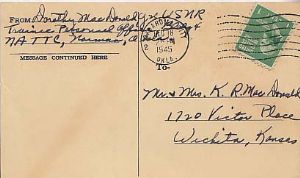 FROM Dorothy MacDonald USNR
Trainee Personnel
NATTC, Norman,
MESSAGE CONTINUED HERE
18
1945
OKLA.
To-
Mr. + Mrs. K. R. MacDonald
1720 Victor Place
Wichita, Kansas